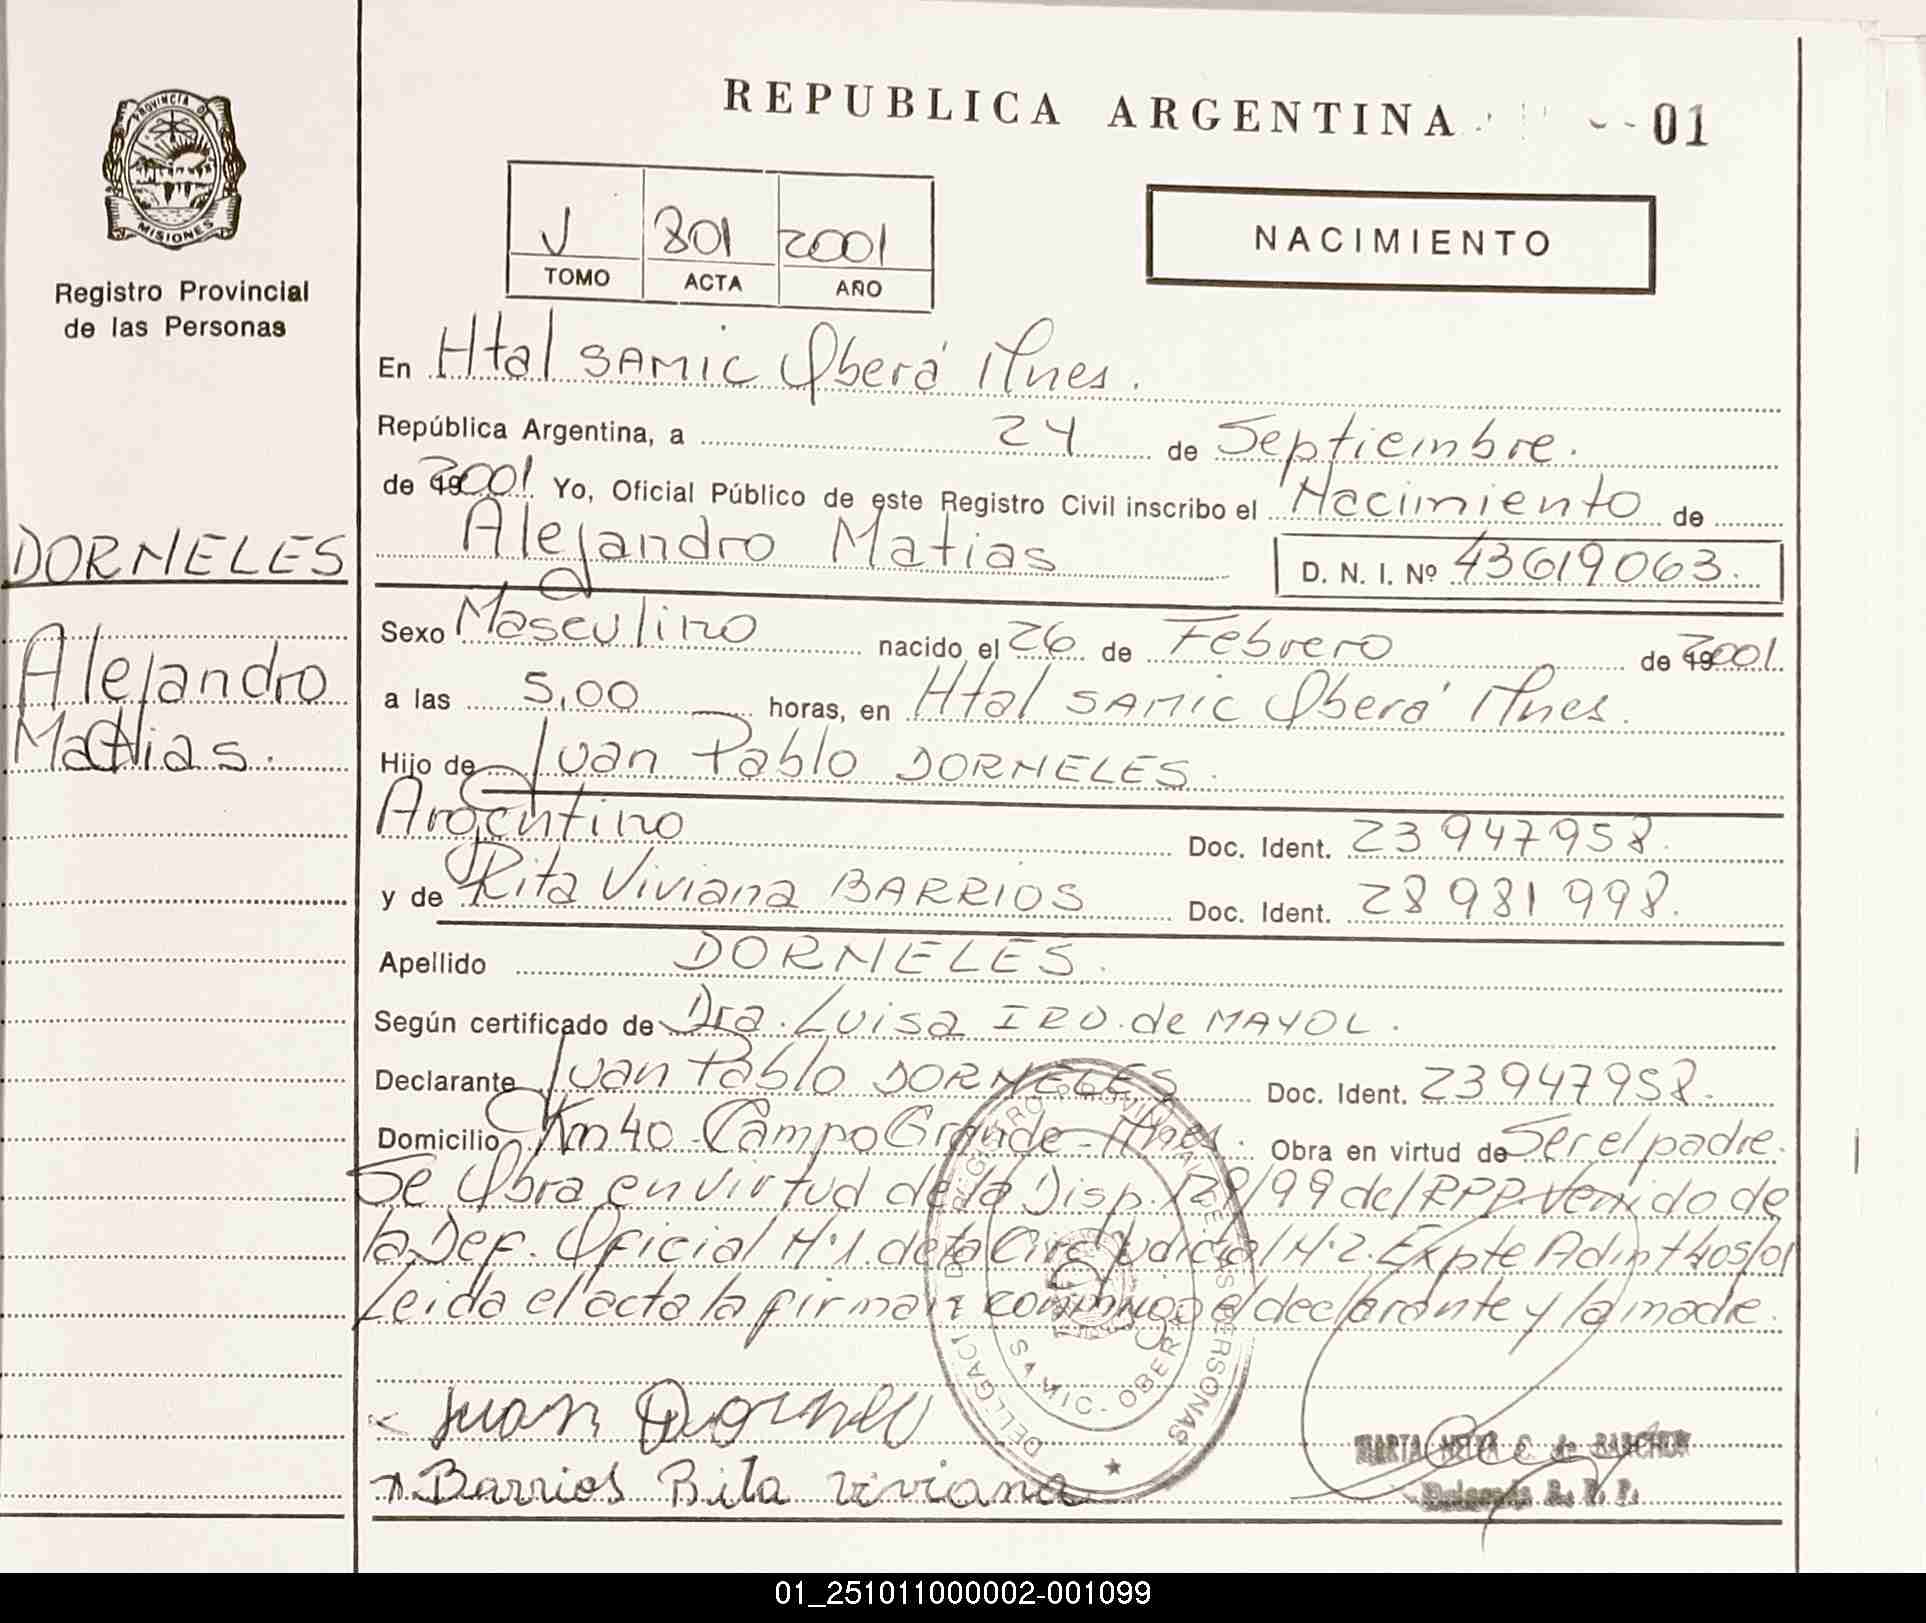 REPUBLICA ARGENTINA 01
PROVINCIA DE
MISIONES
Registro Provincial
de las Personas
J 801 2001
TOMO ACTA AÑO
NACIMIENTO
En Htal SAMIC Oberá Mnes.
República Argentina, a 24 de Septiembre.
de 2001. Yo, Oficial Público de este Registro Civil inscribo el Nacimiento de
Alejandro Matias D. N. I. Nº 43619063.
DORNELES
Alejandro
Matias.
Sexo Masculino nacido el 26 de Febrero de 2001.
a las 5,00 horas, en Htal SAMIC Oberá Mnes.
Hijo de Juan Pablo DORNELES.
Argentino Doc. Ident. 23947958.
y de Rita Viviana BARRIOS Doc. Ident. 28981998.
Apellido DORNELES.
Según certificado de Dra. Luisa IRO. de MAYOL.
Declarante Juan Pablo DORNELES Doc. Ident. 23947958.
Domicilio Km 40 - Campo Grande - Mnes. Obra en virtud de Ser el padre.
Se Obra en virtud de la Disp. /99 del RPP. Venido de
la Def. Oficial N.1. de la Circ Judicial N.2. Expte Admt 405/01
Leida el acta la firman conmigo el declarante y la madre.
REGISTRO PROVINCIAL DE LAS PERSONAS
SAMIC - OBERA
Juan Dornele
Barrios Rita Viviana
MARTA C. de
R. P. P.
01_251011000002-001099